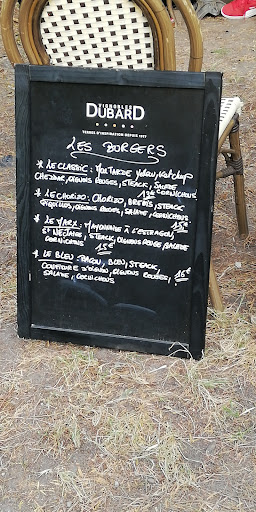 VIGNOBLES
DUBARD
TERRE D'INSPIRATION DEPUIS 1977
LES BURGERS
* LE CLASSIC : MOUTARDE YELLOW, KETCHUP
CHEDDAR, OIGNONS ROUGES, STEACK, SALADE
13€ CORNICHONS
* LE CHORIZO : CHORIZO, BREBIS, STEACK
PIQUILLOS, OIGNONS ROUGES, SALADE, CORNICHONS
15€
* LE : MAYONNAISE À L'ESTRAGON,
ST NECTAIRE, STEACK, OIGNONS ROUGE, SALADE
CORNICHONS 15€
* LE BLEU : BACON, BLEU, STEACK,
CONFITURE D'OIGNON, OIGNONS ROUGES, 15€
SALADE, CORNICHONS